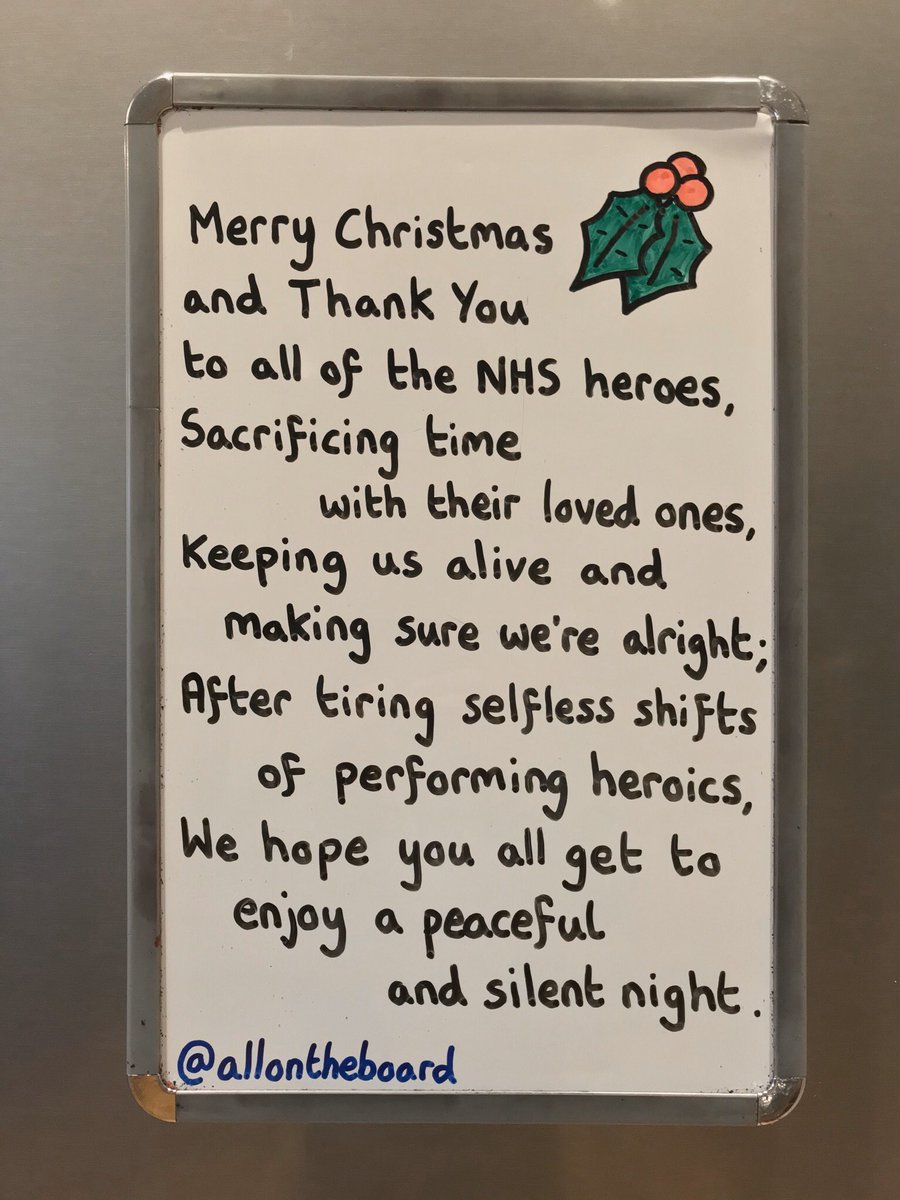 Merry Christmas
and Thank You
to all of the NHS heroes,
Sacrificing time
with their loved ones,
Keeping us alive and
making sure we're alright;
After tiring selfless shifts
of performing heroics,
We hope you all get to
enjoy a peaceful
and silent night.
@allontheboard